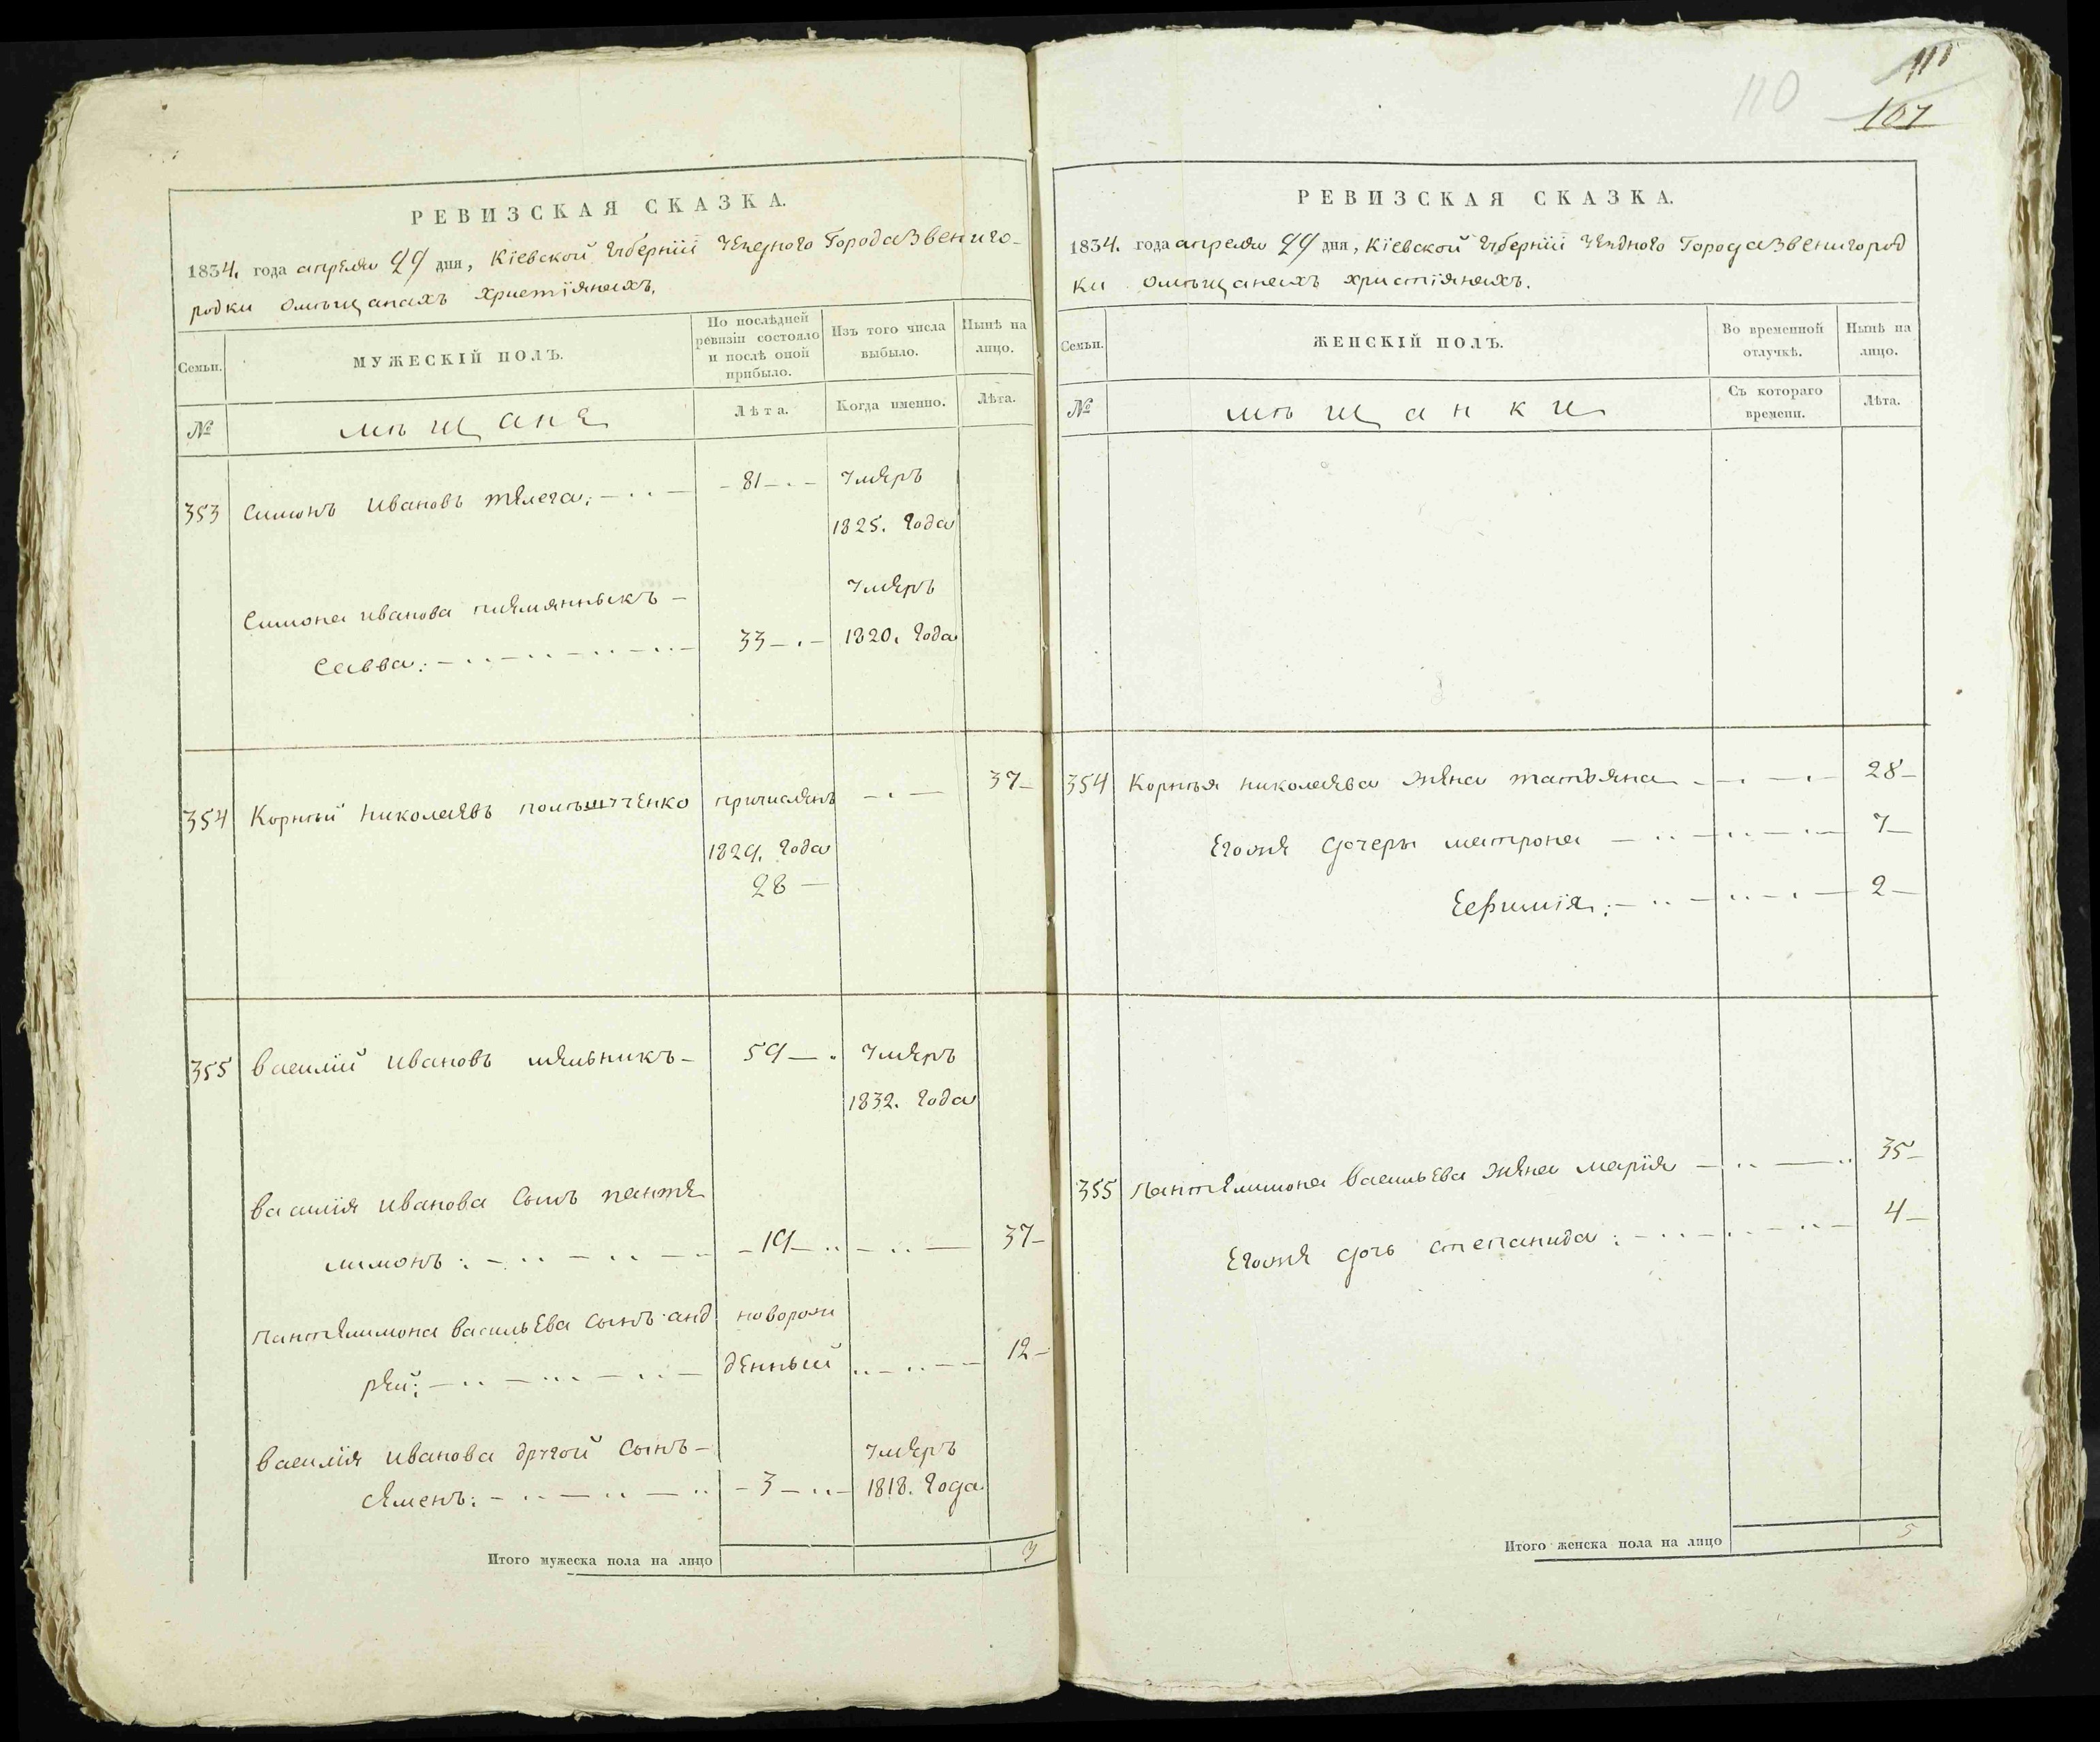 РЕВИЗСКАЯ СКАЗКА.
1834. года апреля 29 дня, Кіевской Губерніи Уезднаго Города Звениго-
родки омѣщанахъ христіянахъ.
Семьи.
МУЖЕСКІЙ ПОЛЪ.
По послѣдней
ревизіи состояло
и послѣ оной
прибыло.
Изъ того числа
выбыло.
Нынѣ на
лицо.
№
мѣщане
Лѣта.
Когда именно.
Лѣта.
353 Симонъ Ивановъ телега: 81 Умеръ
1825. Года
Симона Иванова племянныкъ Умеръ
Савва: 33 1820. Года
354 Корнѣй Николаевъ причисленъ 37
1829. Года
28
355 Василій Ивановъ мельникъ 59 Умеръ
1832. Года
Василія Иванова Сынъ панте
лимонъ: 19 37
Пантелимона Васильева Сынъ анд новорож
рей: денный 12
Василія Иванова другой Сынъ Умеръ
Семенъ: 3 1818. Года
Итого мужеска пола на лицо 3
110
111
107
РЕВИЗСКАЯ СКАЗКА.
1834. года апреля 29 дня, Кіевской Губерніи Уездного Города Звенигород
ки омѣщанахъ христіянахъ.
Семьи.
ЖЕНСКІЙ ПОЛЪ.
Во временной
отлучкѣ.
Нынѣ на
лицо.
№
мѣщанки
Съ котораго
времени.
Лѣта.
354 Корнѣя Николаева жена татьяна 28
Егоже дочеры матрона 7
Ефимія: 2
355 Пантелимона Васильева жена марія 35
Егоже дочь степанида: 4
Итого женска пола на лицо 5